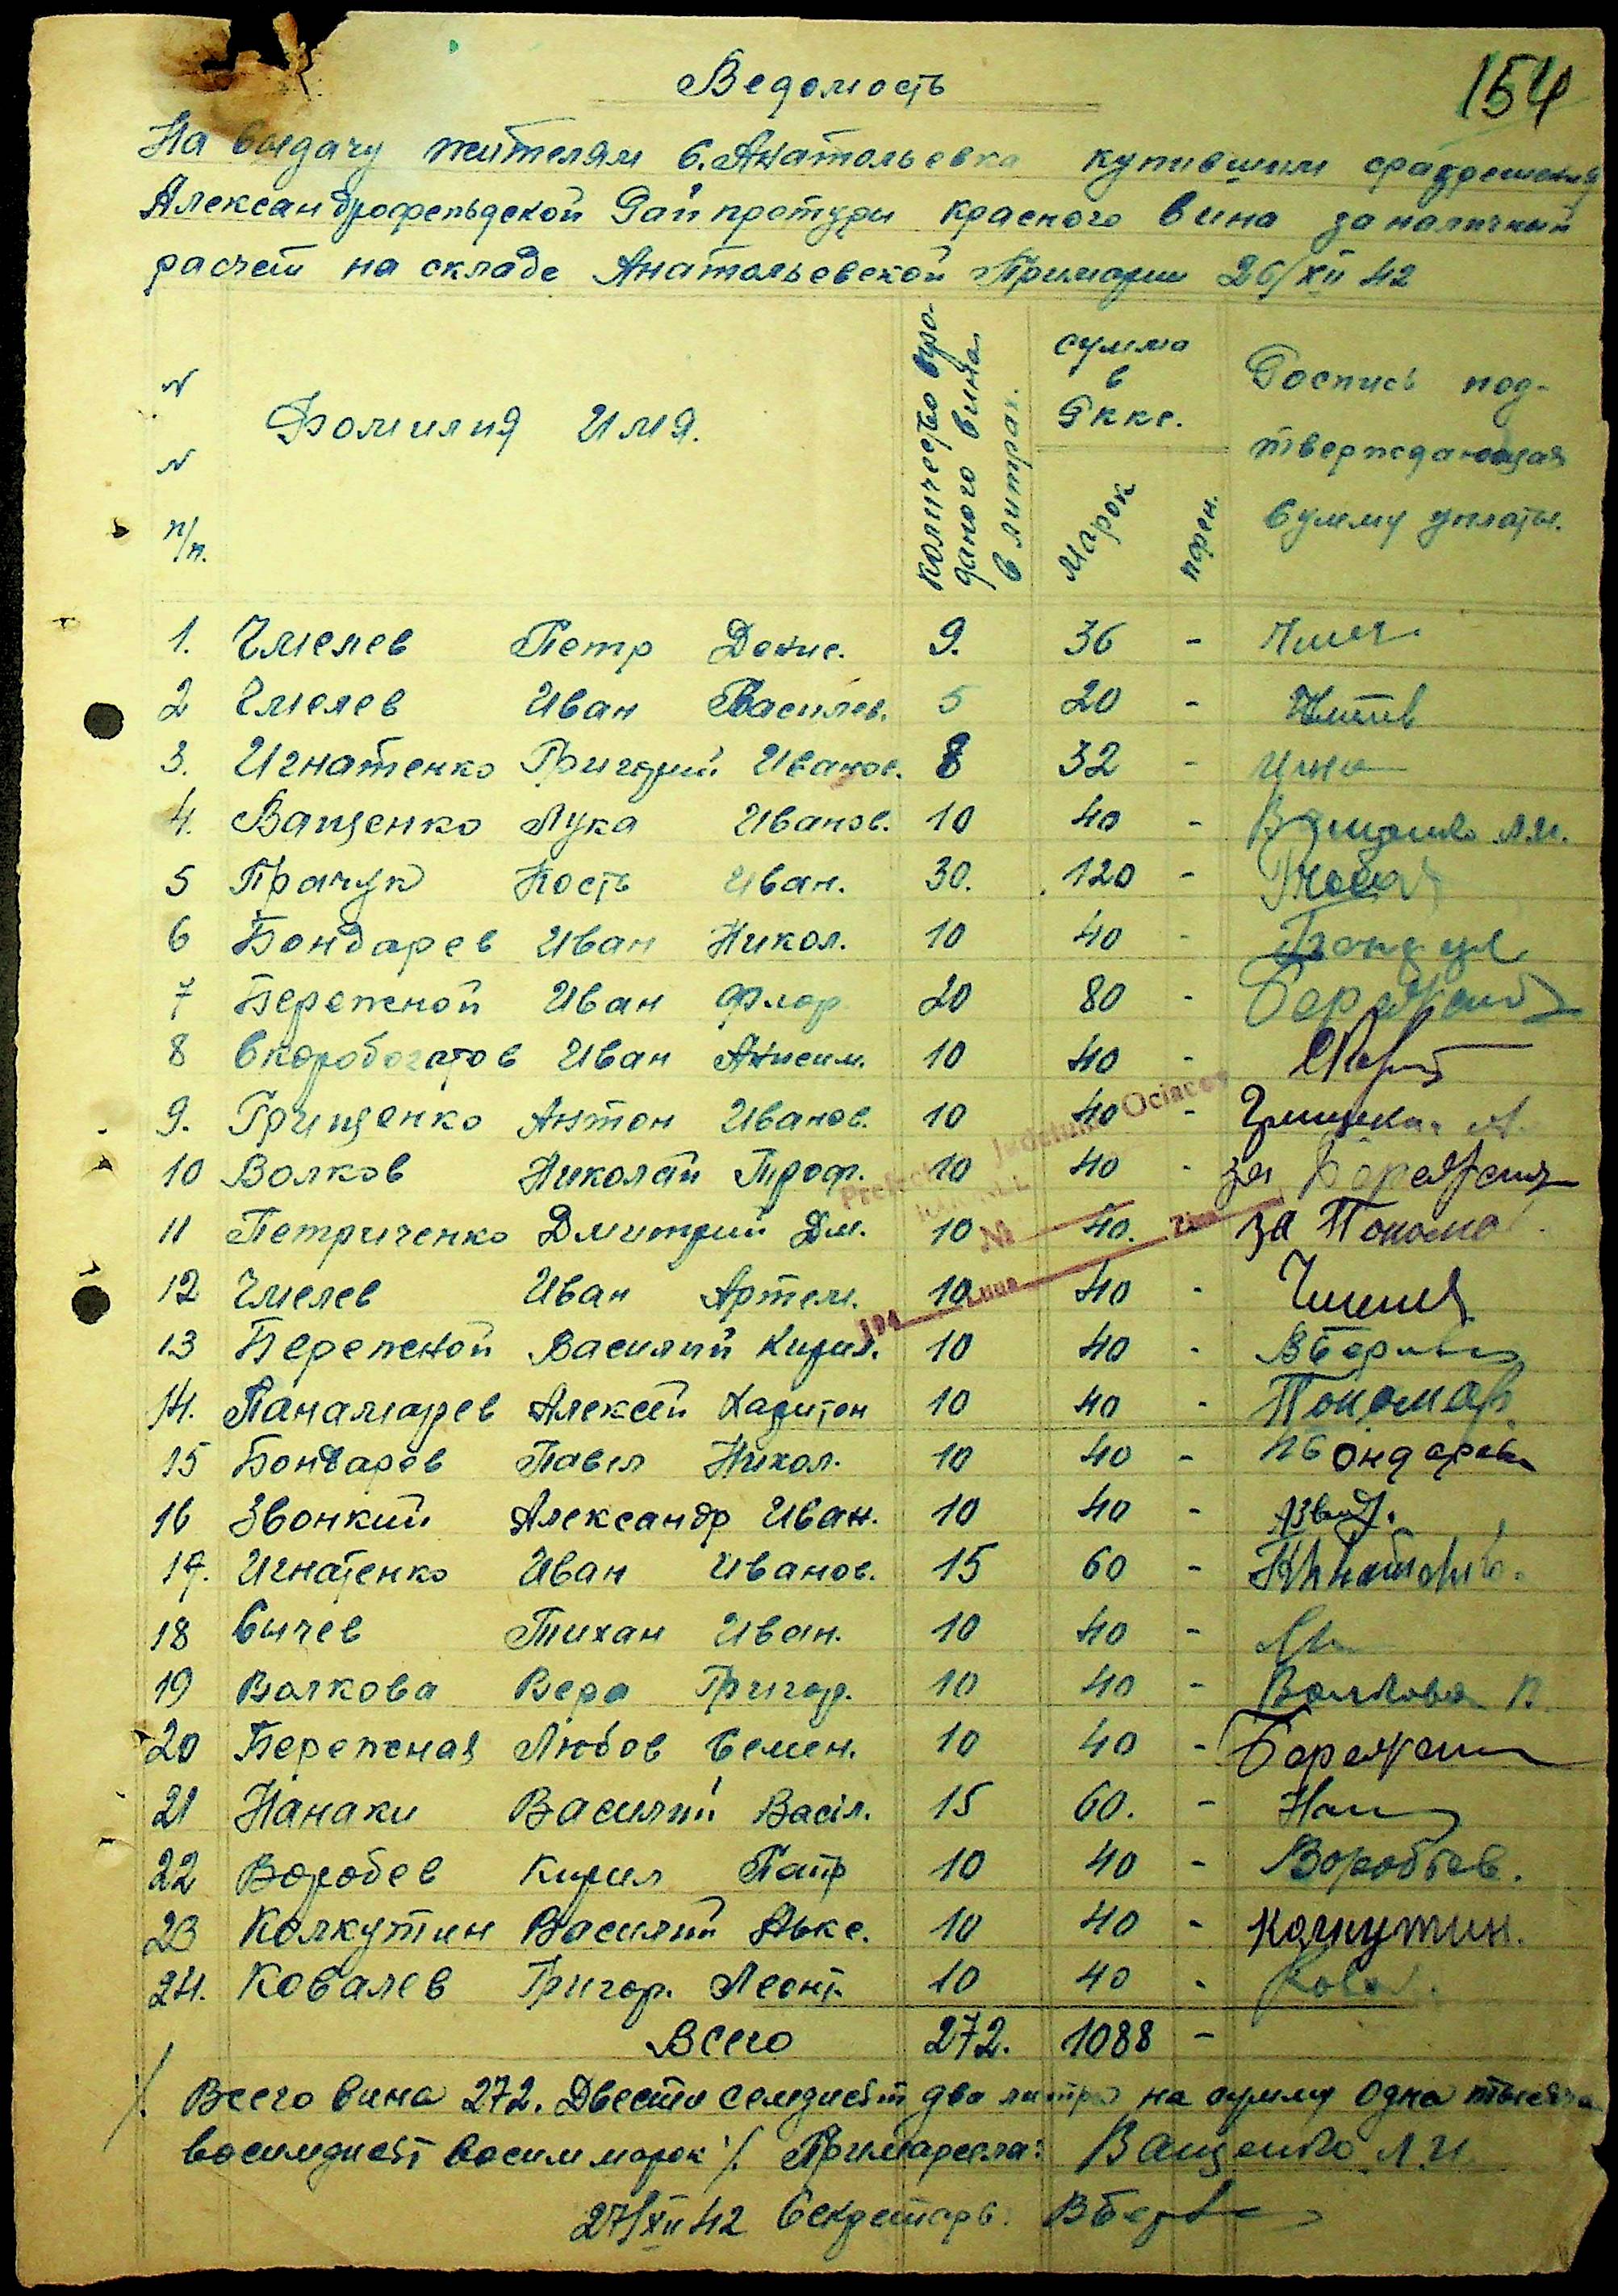 154
Ведомость
На выдачу жителям с. Анатольевка купившим с разрешения
Александрофельдской Райпретуры красного вина за наличный
расчет на складе Анатольевской Примарии 26/XII 42
N N п/п.
Фомилия Имя.
Количество выданого вина в литрах.
сумма в Рккс.
Марок
пфен.
Роспись подтверждающая сумму уплаты.
1. Чмелев Петр Денис. 9. 36 -
2 Чмелев Иван Василев. 5 20 -
3. Игнатенко Григорий Иванов. 8 32 -
4. Ващенко Лука Иванов. 10 40 - Ващенко Л.И.
5 Прачук Кость Иван. 30. 120 -
6 Бондарев Иван Никол. 10 40 -
7 Бережной Иван Флор 20 80 - Бережной
8 Скоробогатов Иван Анисим. 10 40 -
9. Грищенко Антон Иванов. 10 40 -
10 Волков Николай Троф. 10 40 - за
11 Петриченко Дмитрий Дм. 10 40. за Понома
12 Чмелев Иван Артем. 10 40 -
13 Бережной Василий Кирил. 10 40 -
14. Панамарев Алексей Харитон 10 40 - Пономар
15 Бондарев Павел Никол. 10 40 - П Бондарев
16 Звонкий Александр Иван. 10 40 -
17. Игнатенко Иван Иванов. 15 60 -
18 Сычев Тихан Иван. 10 40 -
19 Волкова Вера Григор. 10 40 - Волкова В.
20 Бережная Любов Семен. 10 40 -
21 Нанаки Василий Васіл. 15 60. -
22 Воробев Кирил Патр 10 40 - Воробьев.
23 Колкутин Василий Авкс. 10 40 - Колкутин.
24. Ковалев Григор. Леонт. 10 40 - Ковал.
Prefect Județului Ociacov
№
194 Luna Ziua
Всего 272. 1088 -
/. Всего вина 272. Двести семдисят два литра на сумму одна тысяча
восимдисят восим марок /. Примарсела: Ващенко Л.И.
27/XII 42 Секретарь: